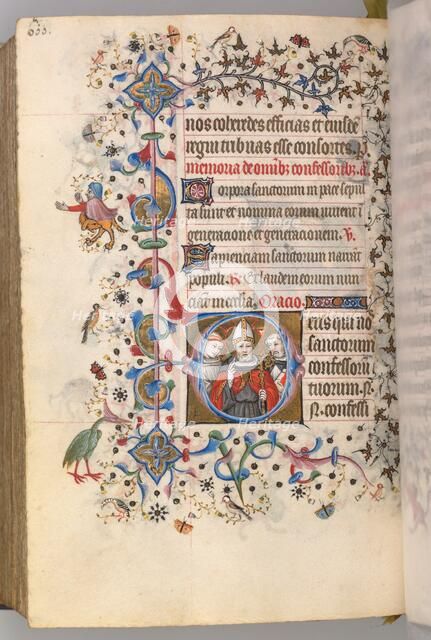 633.
nos coheredes efficias et eiusdē
regni tribuas esse consortes. p
memoria de omnibꝫ confessoribꝫ. ā
Corpora sanctorum in pace sepul
ta sunt et nomina eorum vivent ī
generatione et generationem. V̷.
Sapienciam sanctorum narrant
populi. R̷. Et laudem eorum nun
ciat ecclesia. Oracio.
Deus qui nos
sanctorum
confessorū
tuorum. N.
N. confessō
Heritage